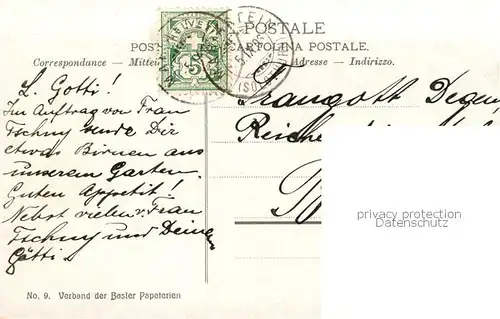 POSTALE
POST CARTOLINA POSTALE.
Correspondance — Mittei Adresse — Indirizzo.
L. Gotti!
Im Auftrag von Frau
Tschuy sende Dir
etwas Birnen aus
unserem Garten.
Guten Appetit!
Nebst vielen v. Frau
Tschuy und Deinem
Götti
Traugott Degen
Reiche
privacy protection
Datenschutz
No. 9. Verband der Basler Papeterien